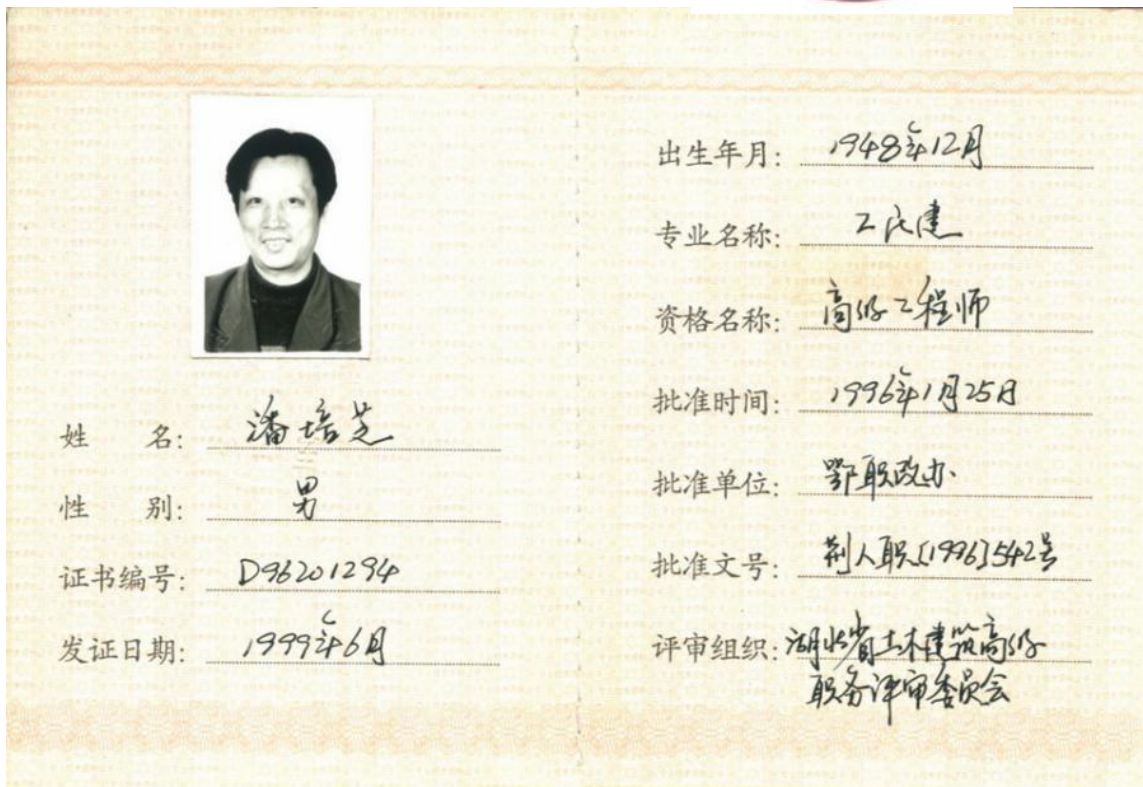 姓 名: 潘培芝
性 别: 男
证书编号: D96201294
发证日期: 1999年6月
出生年月: 1948年12月
专业名称: 工民建
资格名称: 高级工程师
批准时间: 1996年1月25日
批准单位: 鄂职改办
批准文号: 荆人职[1996]542号
评审组织: 湖北省土木建筑高级
职务评审委员会